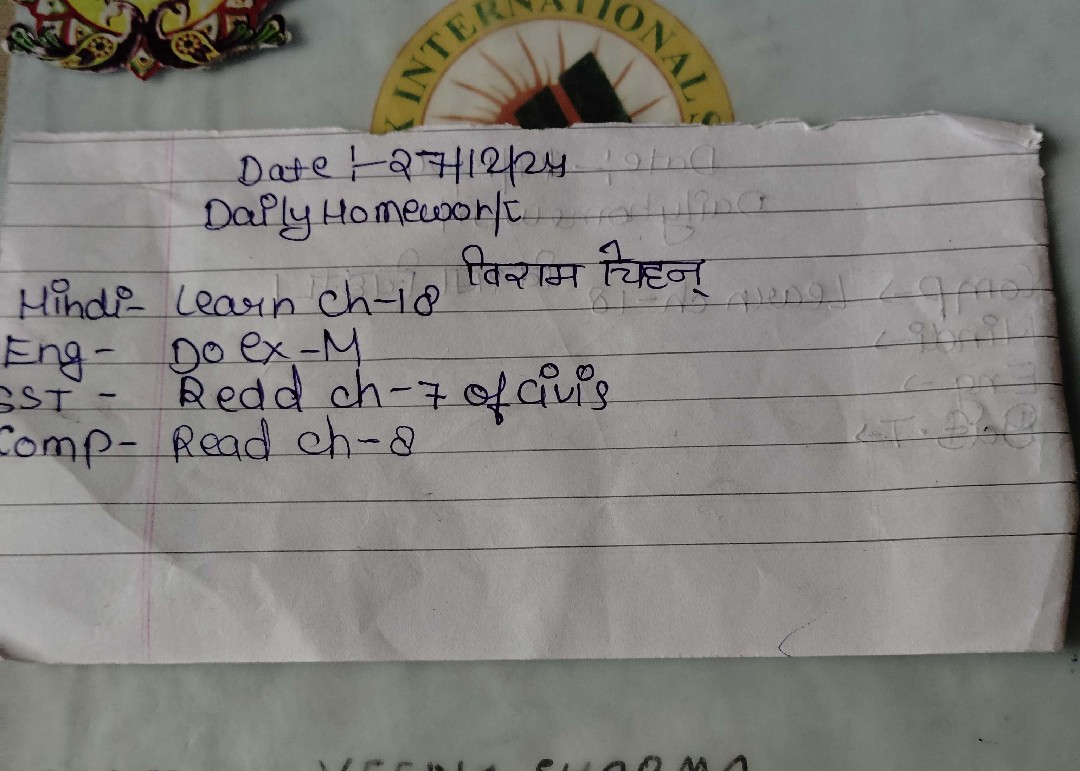 INTERNATIONAL
Date :- 27/12/24
Daily Homework
विराम चिहन्
Hindi- Learn ch-18
Eng- Do ex-M
SST - Redd ch-7 of Civis
Comp- Read ch-8